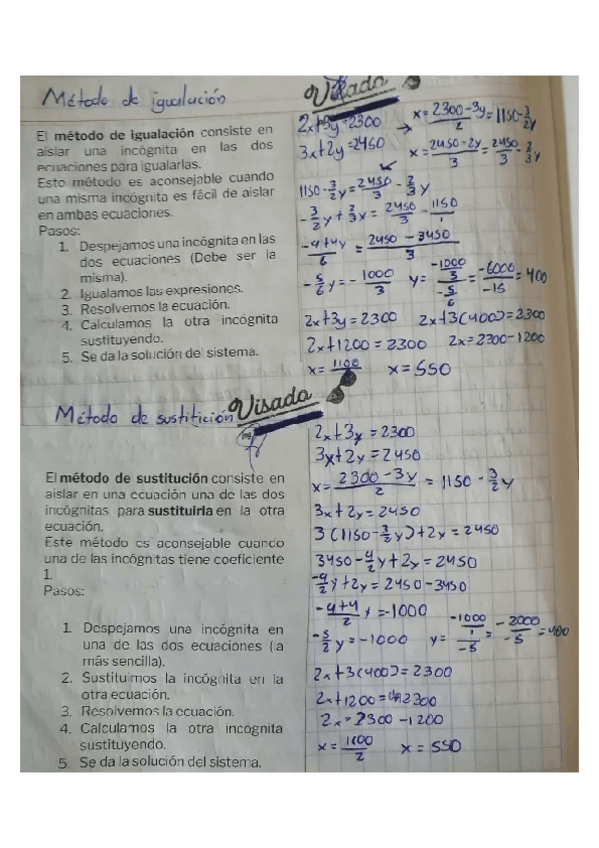 Método de igualación
Visado
El método de igualación consiste en
aislar una incógnita en las dos
ecuaciones para igualarlas.
Este método es aconsejable cuando
una misma incógnita es fácil de aislar
en ambas ecuaciones.
Pasos:
1. Despejamos una incógnita en las
dos ecuaciones (Debe ser la
misma).
2. Igualamos las expresiones.
3. Resolvemos la ecuación.
4. Calculamos la otra incógnita
sustituyendo.
5. Se da la solución del sistema.
2x+3y=2300
3x+2y=2450
x=2300-3y/2=1150-3/2y
x=2450-2y/3=2450/3-2/3y
1150-3/2y=2450/3-2/3y
-3/2y+2/3x=2450/3-1150/1
-9+4y/6=2450-3450/3
-5/6y=-1000/3 y=-1000/3/-5/6=-6000/-15=400
2x+3y=2300 2x+3(400)=2300
2x+1200=2300 2x=2300-1200
x=1100/2 x=550
Método de sustitición
Visado
El método de sustitución consiste en
aislar en una ecuación una de las dos
incógnitas para sustituirla en la otra
ecuación.
Este método es aconsejable cuando
una de las incógnitas tiene coeficiente
1.
Pasos:
1. Despejamos una incógnita en
una de las dos ecuaciones (la
más sencilla).
2. Sustituimos la incógnita en la
otra ecuación.
3. Resolvemos la ecuación.
4. Calculamos la otra incógnita
sustituyendo.
5. Se da la solución del sistema.
2x+3y=2300
3x+2y=2450
x=2300-3y/2=1150-3/2y
3x+2y=2450
3(1150-3/2y)+2y=2450
3450-9/2y+2y=2450
-9/2y+2y=2450-3450
-9+4/2y=-1000
-5/2y=-1000 y=-1000/1/-5=-2000/-5=400
2x+3(400)=2300
2x+1200=2300
2x=2300-1200
x=1100/2 x=550